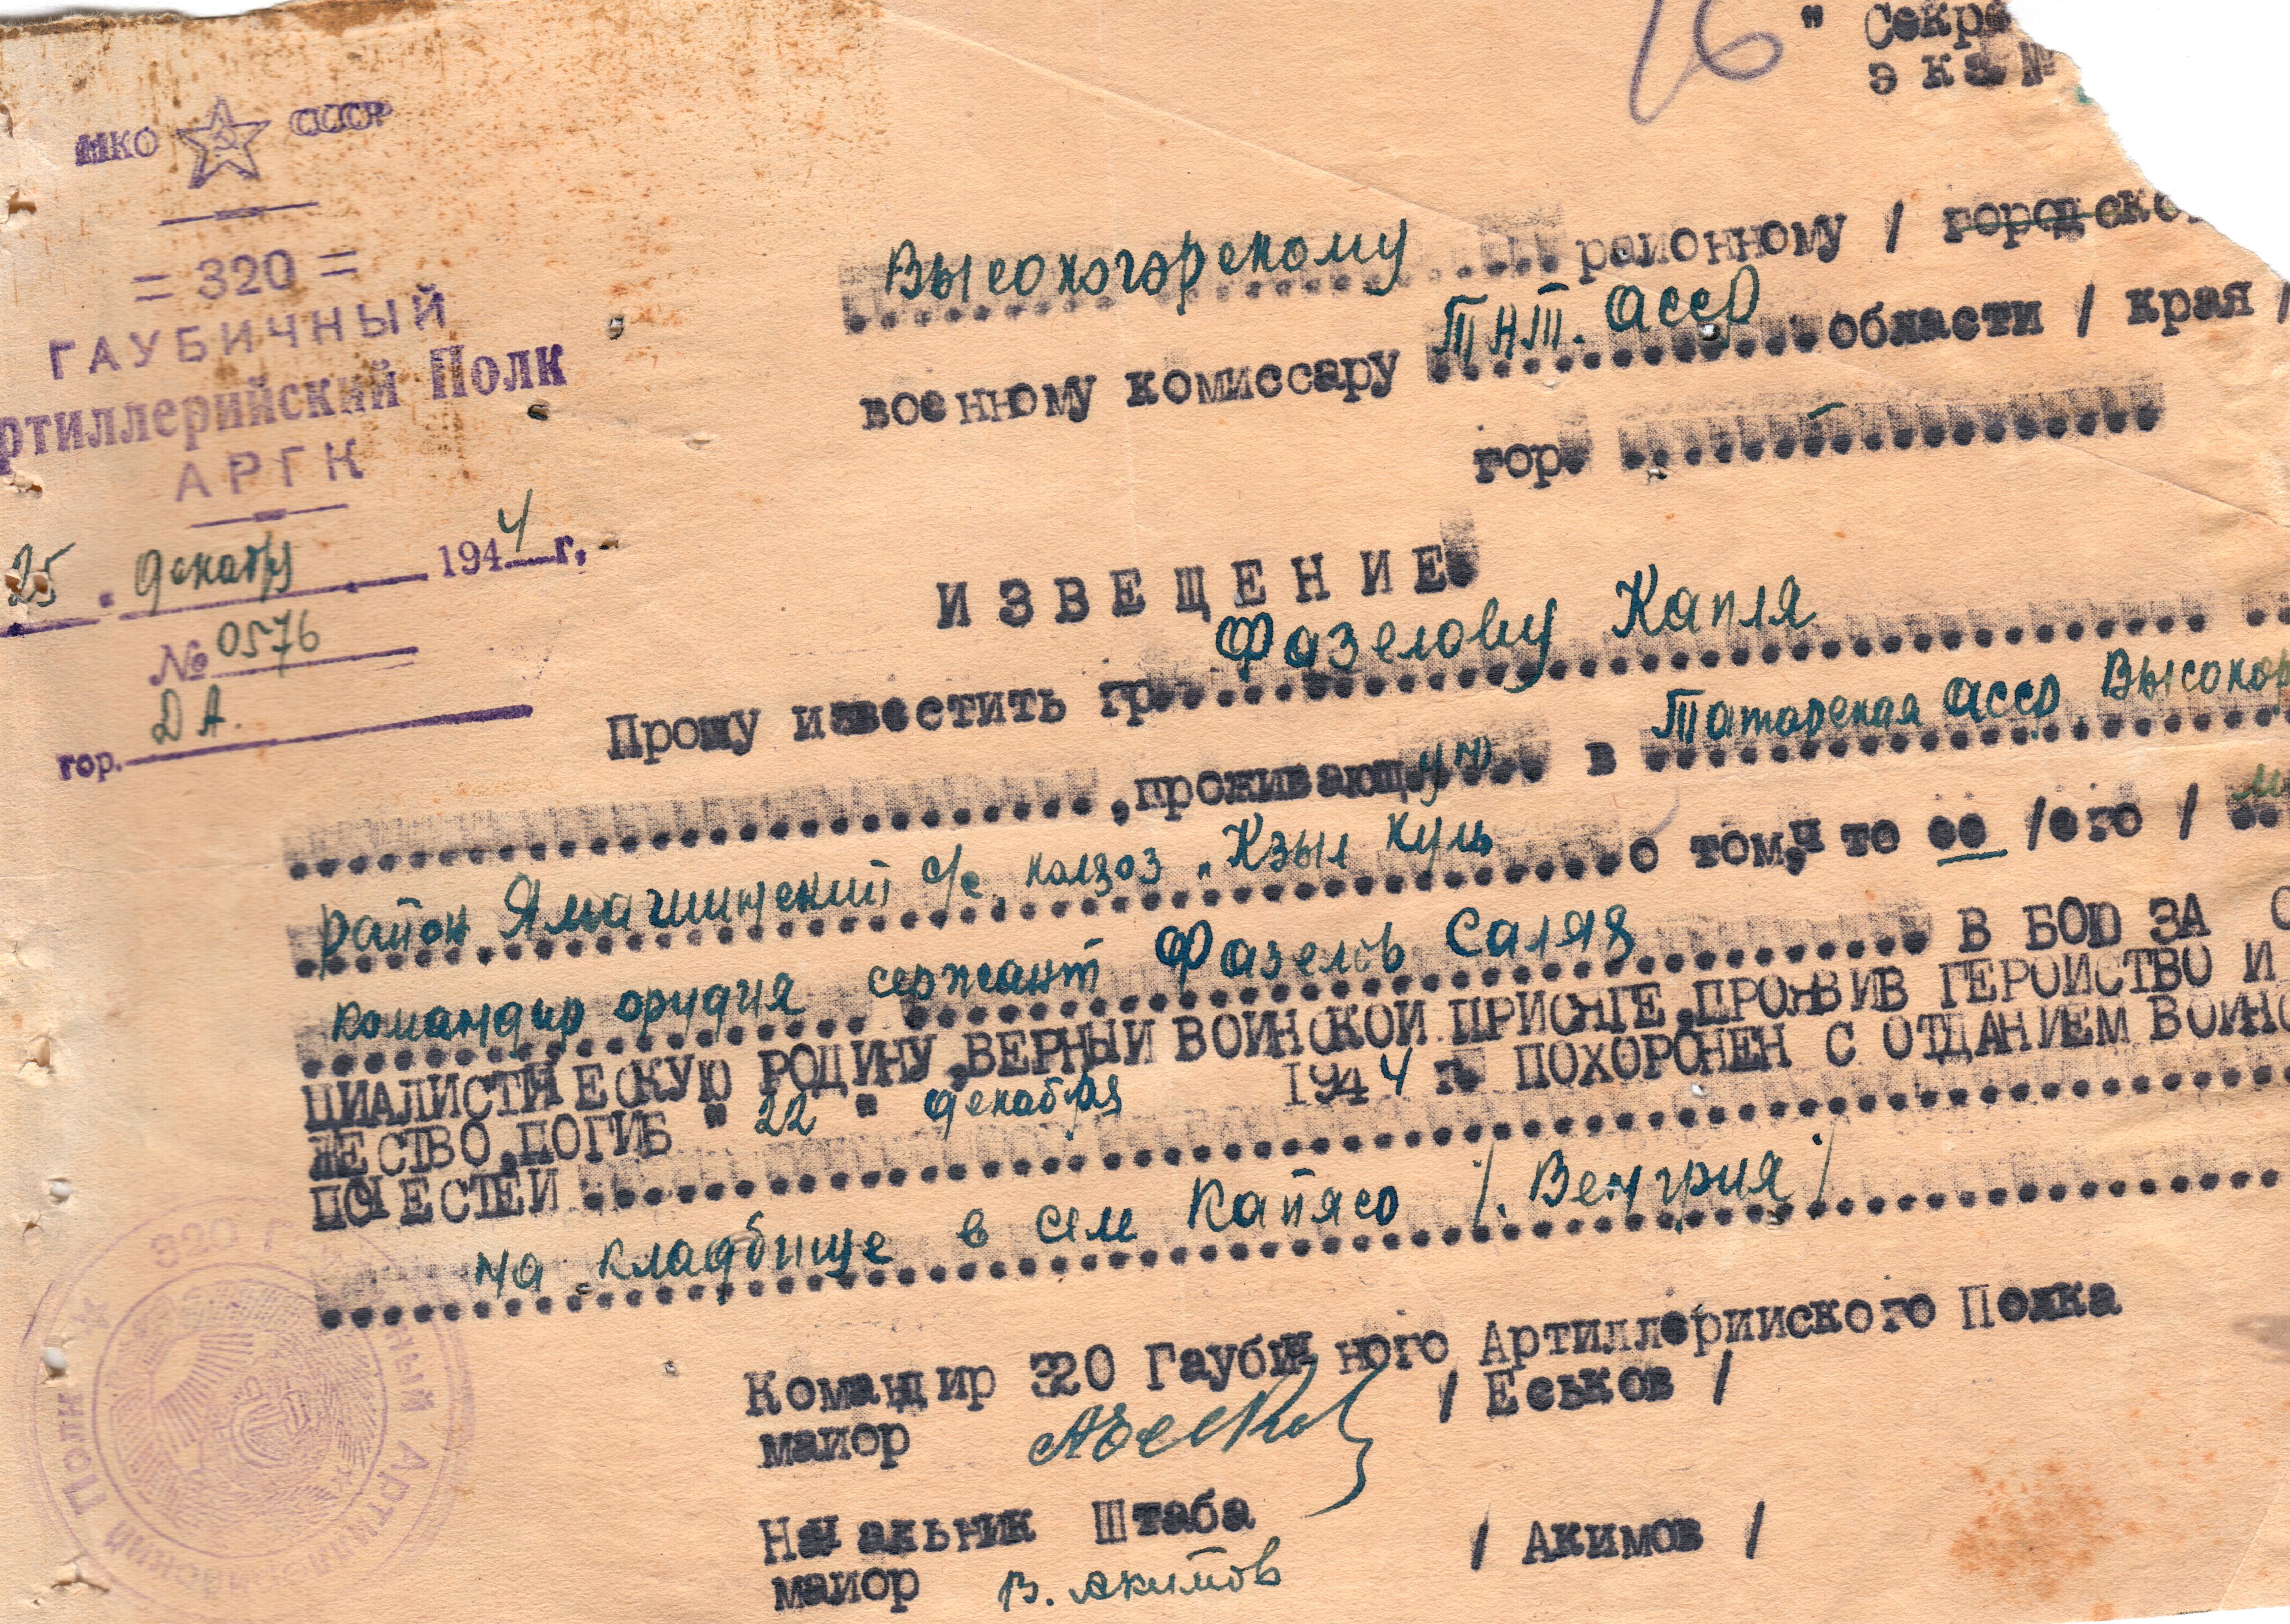 16 " Секре
экз №
МКО СССР
= 320 =
ГАУБИЧНЫЙ
ртиллерийский Полк
АРГК
25 . декабря . 1944 г.
№ 0576
гор. ДА.
Высокогорскому ..... районному / городско
военному комиссару Тат. АССР области / края /
гор. ..... –
ИЗВЕЩЕНИЕ.
Прошу известить гр. Фазелову Капля
....., проживающую в Татарская АССР Высокогор
район Ямашинский с/с, колхоз "Кзыл Куль о том, что ее /его /
командир орудия сержант Фазелов Саляв В БОЮ ЗА С
ЦИАЛИСТИЧЕСКУЮ РОДИНУ, ВЕРНЫЙ ВОИНСКОЙ ПРИСЯГЕ, ПРОЯВИВ ГЕРОЙСТВО И
ЖЕСТВО, ПОГИБ " 22 " декабря 1944 г. ПОХОРОНЕН С ОТДАНИЕМ ВОИНС
ПОЧЕСТЕЙ .....
на кладбище в сел Капясо /. Венгрия /
Командир 320 Гаубичного Артиллерийского Полка
майор / Еськов /
Начальник Штаба
майор В. Акимов / Акимов /
320 Г ный Артиллерийский Полк